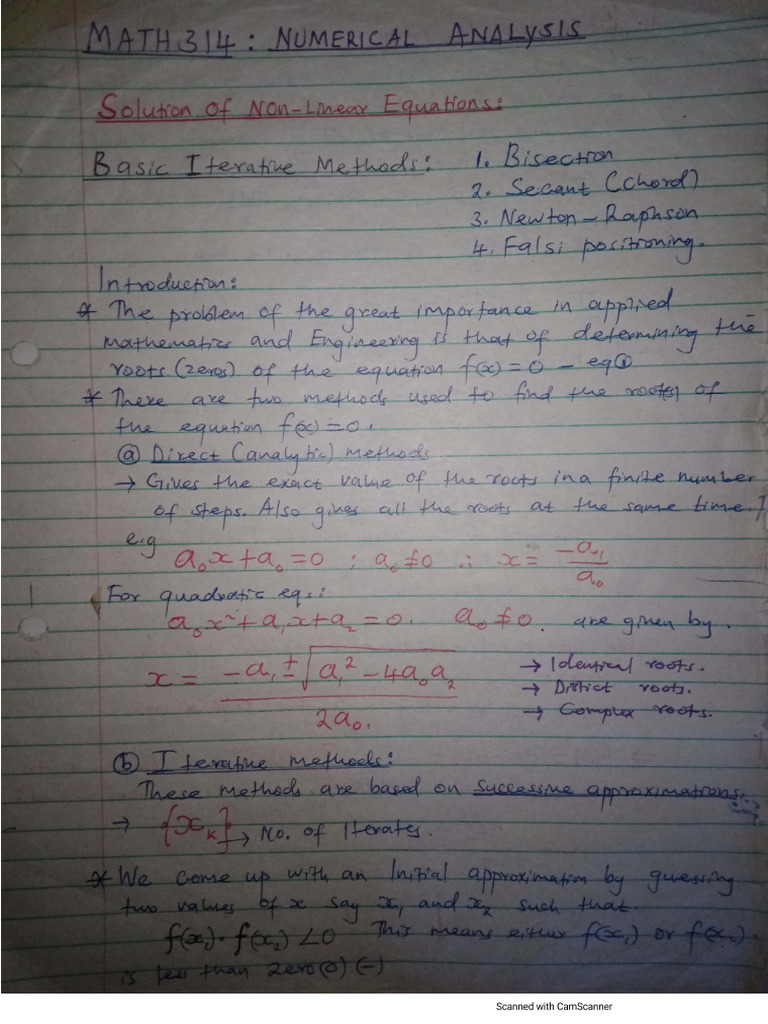 MATH 314 : NUMERICAL ANALYSIS
Solution of Non-Linear Equations:
Basic Iterative Methods: 1. Bisection
2. Secant (Chord)
3. Newton-Raphson
4. Falsi positioning.
Introduction:
* The problem of the great importance in applied
mathematics and Engineering is that of determining the
roots (zeros) of the equation f(x) = 0 - eq①
* There are two methods used to find the root(s) of
the equation f(x) = 0.
ⓐ Direct (analytic) methods
→ Gives the exact value of the roots in a finite number
of steps. Also gives all the roots at the same time.
e.g
a₀x + a₀ = 0 ; a₀ ≠ 0 ∴ x = -a₁/a₀
For quadratic eqs:
a₀x² + a₁x + a₂ = 0. a₀ ≠ 0. are given by.
x = (-a₁ ± √(a₁² - 4a₀a₂)) / 2a₀.
→ Identical roots.
→ Distict roots.
→ Complex roots.
ⓑ Iterative methods:
These methods are based on successive approximations.
→ {xₖ} → No. of Iterates.
* We come up with an Initial approximation by guessing
two values of x say x₁ and x₂ such that.
f(x₁) · f(x₂) < 0 This means either f(x₁) or f(x₂)
is less than zero (0) (-)
Scanned with CamScanner